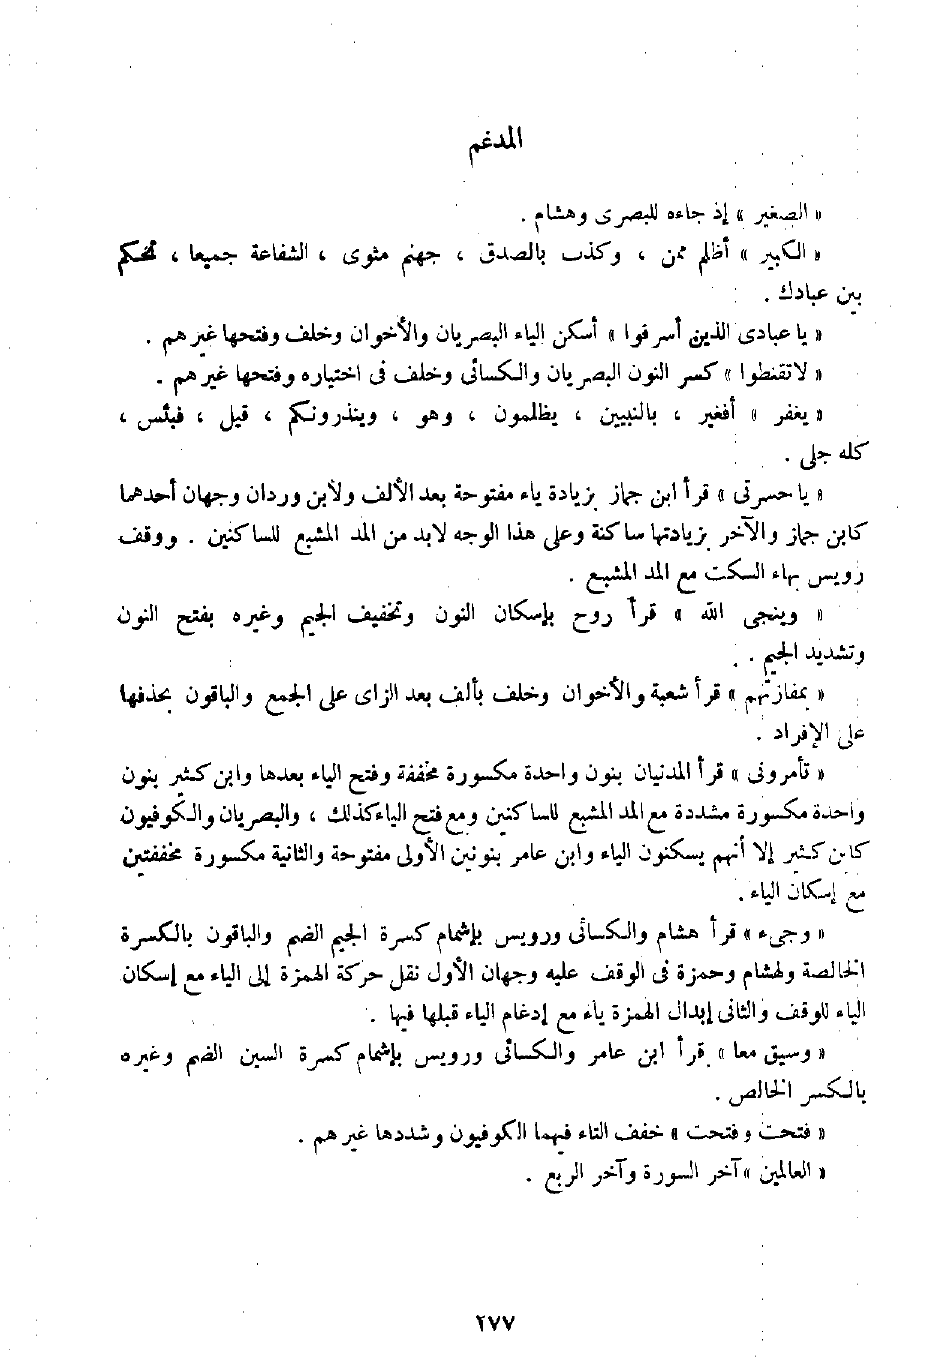 المدغم
« الصغير » إذ جاءه للبصرى وهشام .
« الكبير » أظلم ممن ، وكذب بالصدق ، جهنم مثوى ، الشفاعة جميعا ، تحكم
بين عبادك .
« يا عبادى الذين أسرفوا » أسكن الياء البصريان والأخوان وخلف وفتحها غيرهم .
« لاتقنطوا » كسر النون البصريان والكسائى وخلف فى اختياره وفتحها غيرهم .
« يغفر » أفغير ، بالنبيين ، يظلمون ، وهو ، وينذرونكم ، قيل ، فبئس ،
كله جلى .
« يا حسرتى » قرأ ابن جماز بزيادة ياء مفتوحة بعد الألف ولابن وردان وجهان أحدهما
كابن جماز والآخر بزيادتها ساكنة وعلى هذا الوجه لابد من المد المشبع للساكنين . ووقف
رويس بهاء السكت مع المد المشبع .
« وينجى الله » قرأ روح بإسكان النون وتخفيف الجيم وغيره بفتح النون
وتشديد الجيم .
« بمفازتهم » قرأ شعبة والأخوان وخلف بألف بعد الزاى على الجمع والباقون بحذفها
على الإفراد .
« تأمرونى » قرأ المدنيان بنون واحدة مكسورة مخففة وفتح الياء بعدها وابن كثير بنون
واحدة مكسورة مشددة مع المد المشبع للساكنين ومع فتح الياء كذلك ، والبصريان والكوفيون
كابن كثير إلا أنهم يسكنون الياء وابن عامر بنونين الأولى مفتوحة والثانية مكسورة مخففتين
مع إسكان الياء .
« وجىء » قرأ هشام والكسائى ورويس بإشمام كسرة الجيم الضم والباقون بالكسرة
الخالصة ولهشام وحمزة فى الوقف عليه وجهان الأول نقل حركة الهمزة إلى الياء مع إسكان
الياء للوقف والثانى إبدال الهمزة ياء مع إدغام الياء قبلها فيها .
« وسيق معا » قرأ ابن عامر والكسائى ورويس بإشمام كسرة السين الضم وغيره
بالكسر الخالص .
« فتحت وفتحت » خفف التاء فيهما الكوفيون وشددها غيرهم .
« العالمين » آخر السورة وآخر الربع .
٢٧٧